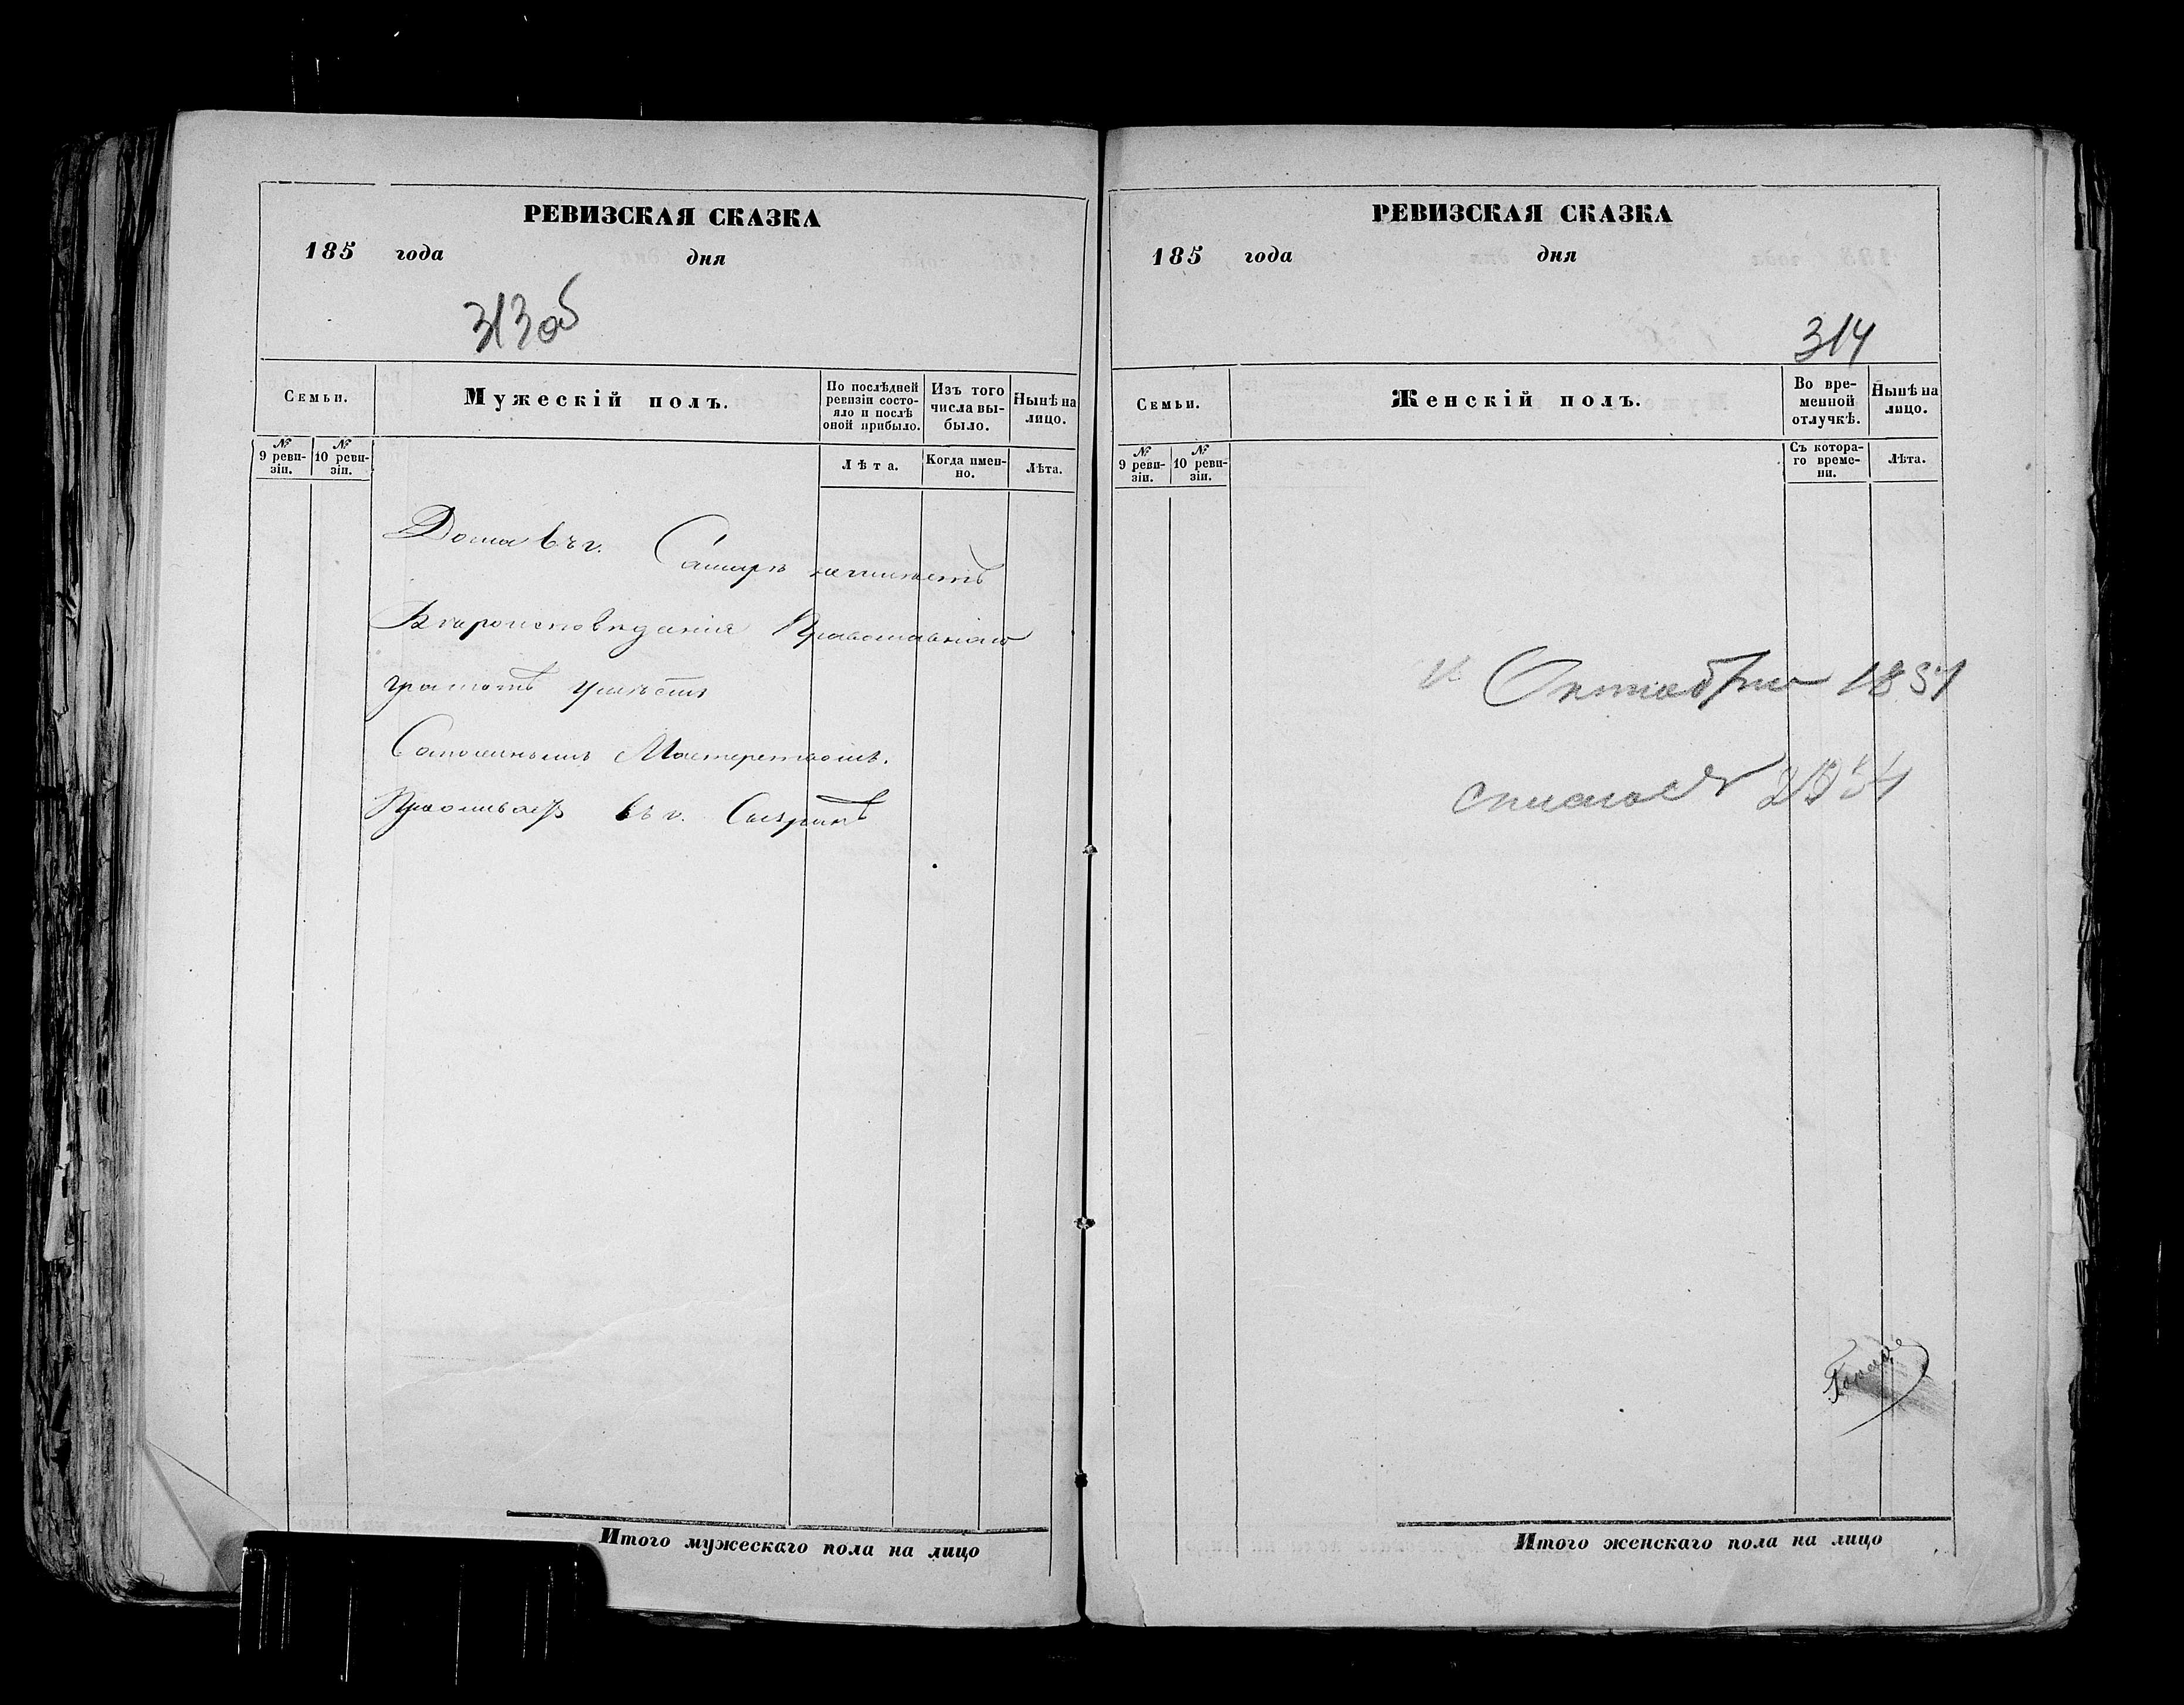 РЕВИЗСКАЯ СКАЗКА
185 года дня
313об
Семьи.
Мужескій полъ.
По послѣдней ревизіи состояло и послѣ оной прибыло.
Изъ того числа выбыло.
Нынѣ на лицо.
№ 9 ревизіи.
№ 10 ревизіи.
Лѣта.
Когда именно.
Лѣта.
Дома въ г. Самарѣ неимѣетъ
Вѣроисповѣданія Православнаго
грамотѣ умѣетъ
Мастерствомъ.
въ г.
Итого мужескаго пола на лицо
РЕВИЗСКАЯ СКАЗКА
185 года дня
314
Семьи.
Женскій полъ.
Во временной отлучкѣ.
Нынѣ на лицо.
№ 9 ревизіи.
№ 10 ревизіи.
Съ котораго времени.
Лѣта.
Октября 1857
Итого женскаго пола на лицо